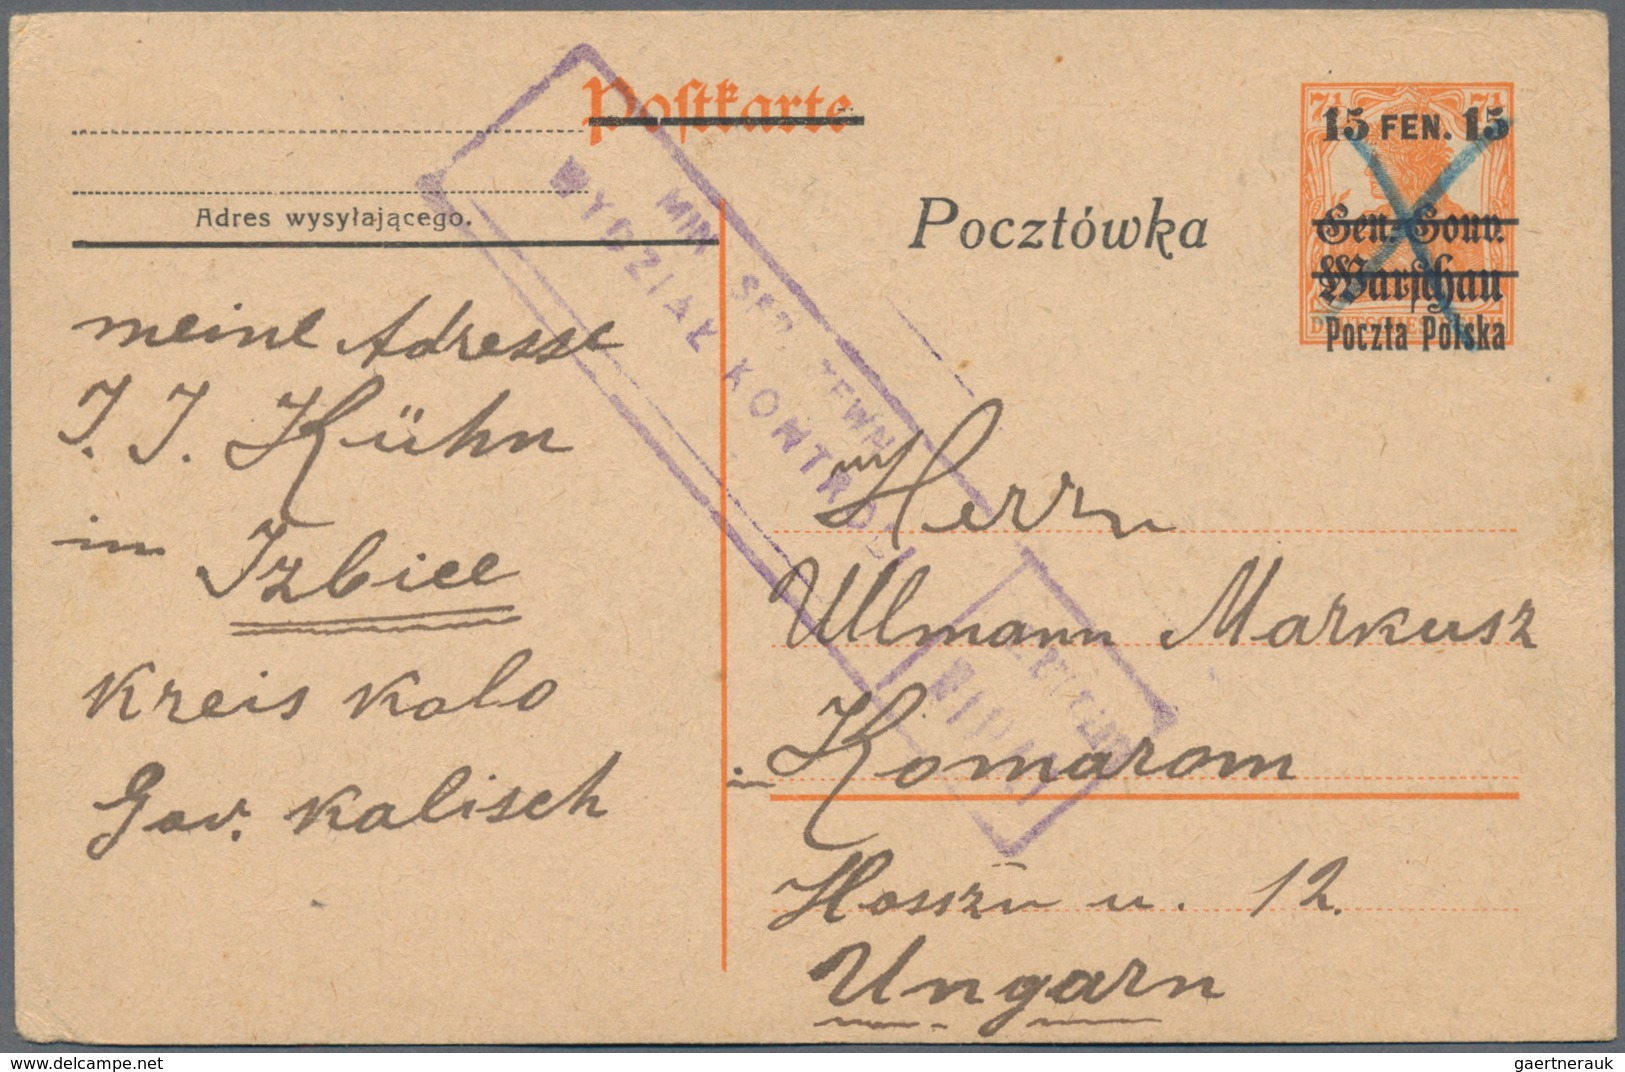 Postkarte
Adres wysyłającego.
Pocztówka
7½ 7½
15 FEN. 15
Gen.-Gouv.
Warschau
Poczta Polska
MIN. SPR. ZEWN.
WYDZIAŁ KONTROLI
meine Adresse
J. J. Kühn
in Izbice
Kreis Kolo
Gov. Kalisch
Herrn
Ullmann Markusz
in Komarom
Hosszu u. 12.
Ungarn
gaertnerauk